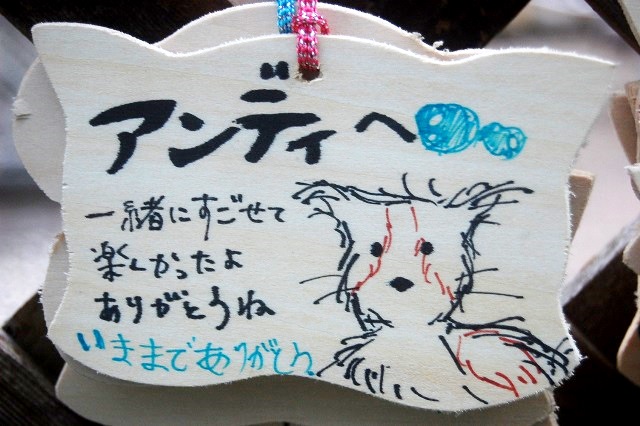 アンディへ
一緒にすごせて
楽しかったよ
ありがとうね
いままでありがとう